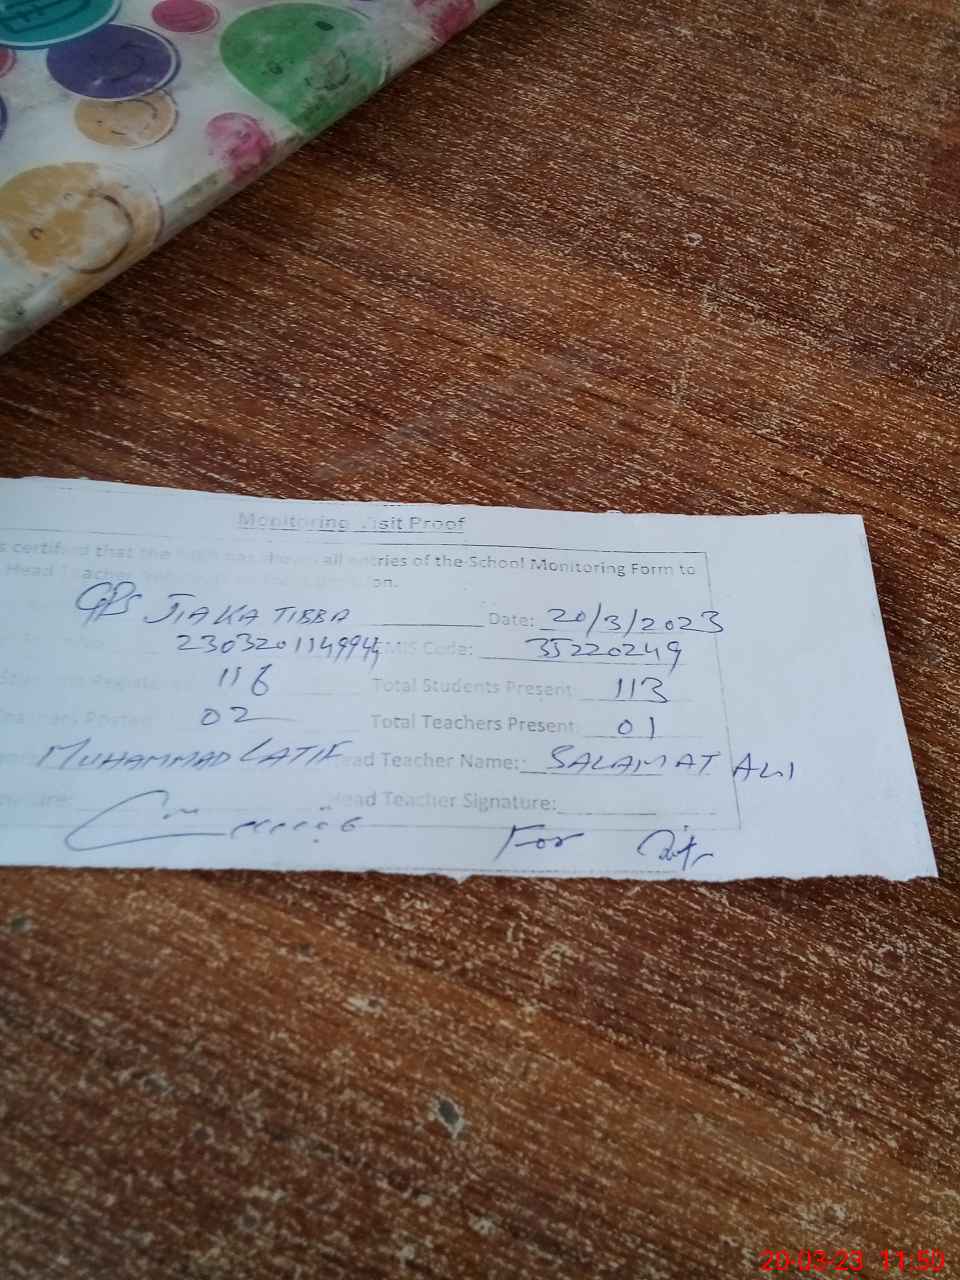 Monitoring Visit Proof
s certified that the has shown all entries of the School Monitoring Form to
Head Teacher on.
GPS JIAKA TIBBA Date: 20/3/2023
MIS Code: 35220249
116 Total Students Present: 113
02 Total Teachers Present: 01
MUHAMMAD LATIF ead Teacher Name: SALAMAT ALI
Head Teacher Signature:
For
20-03-23 11:50